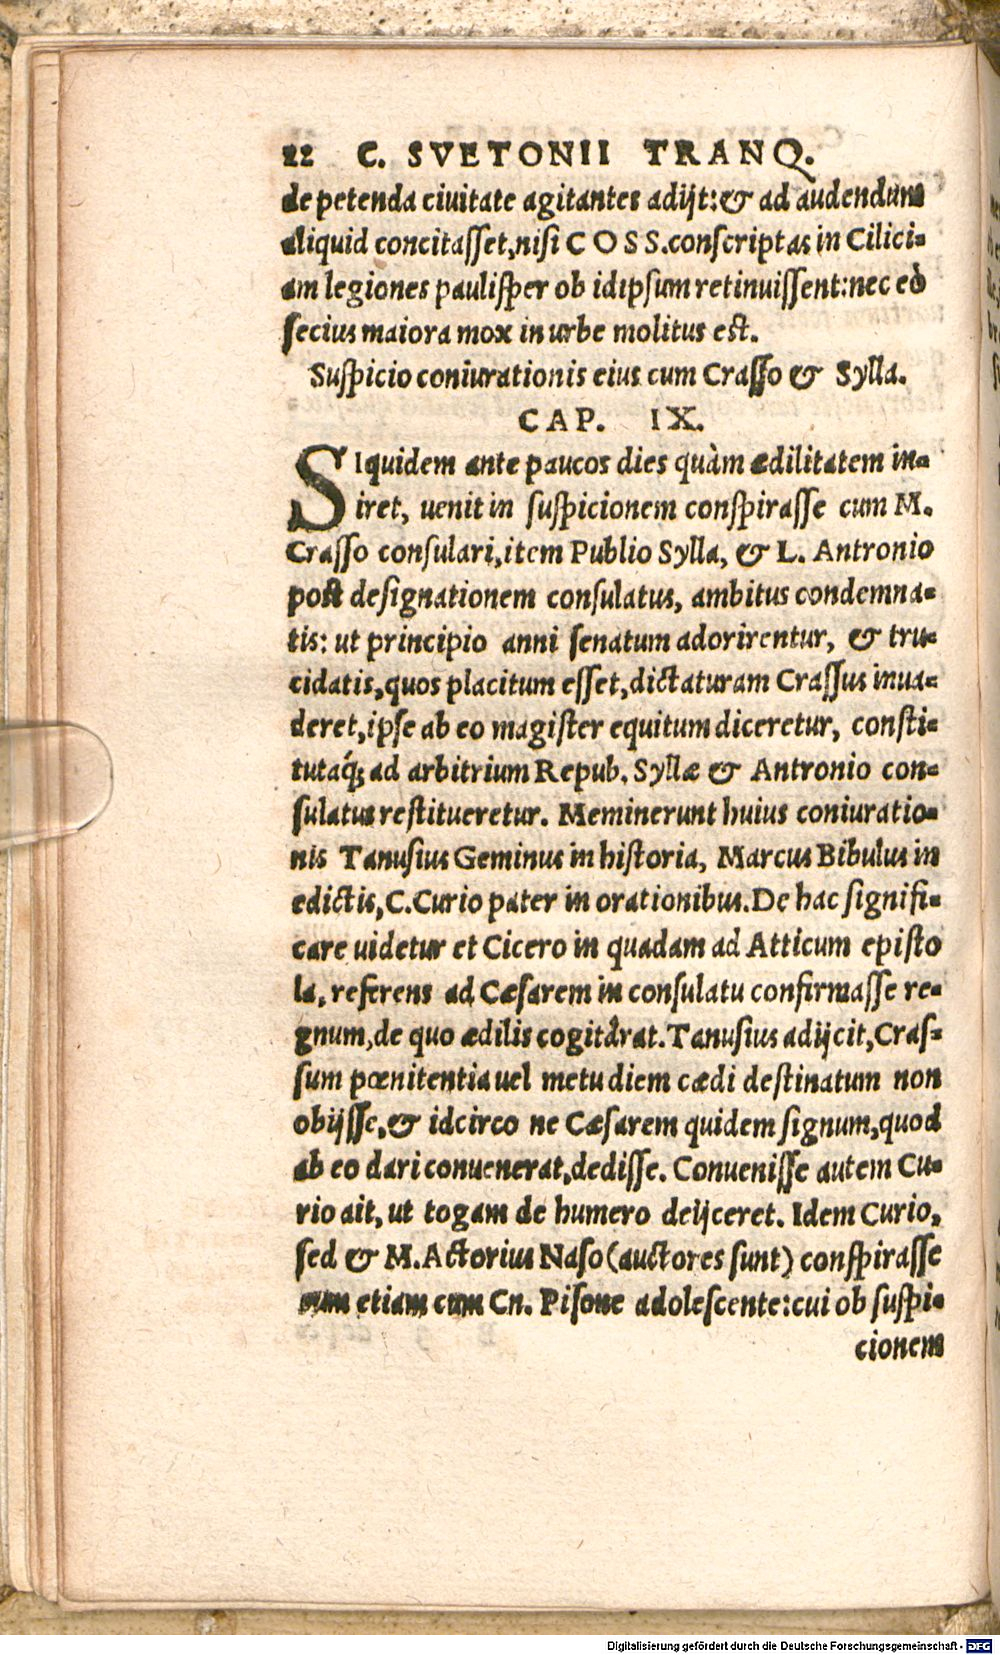 22 C. SVETONII TRANQ.
de petenda ciuitate agitantes adijt: & ad audendum
aliquid concitasset, nisi COSS. conscriptas in Cilici-
am legiones paulisper ob idipsum retinuissent: nec eò
secius maiora mox in urbe molitus est.
Suspicio coniurationis eius cum Crasso & Sylla.
CAP. IX.
SIquidem ante paucos dies quàm ædilitatem in-
iret, uenit in suspicionem conspirasse cum M.
Crasso consulari, item Publio Sylla, & L. Antronio
post designationem consulatus, ambitus condemna-
tis: ut principio anni senatum adorirentur, & tru-
cidatis, quos placitum esset, dictaturam Crassus inua-
deret, ipse ab eo magister equitum diceretur, consti-
tutaq́; ad arbitrium Repub. Syllæ & Antronio con-
sulatus restitueretur. Meminerunt huius coniuratio-
nis Tanusius Geminus in historia, Marcus Bibulus in
edictis, C. Curio pater in orationibus. De hac signifi-
care uidetur et Cicero in quadam ad Atticum episto
la, referens ad Cæsarem in consulatu confirmasse re-
gnum, de quo ædilis cogitârat. Tanusius adijcit, Cras-
sum pœnitentia uel metu diem cædi destinatum non
obijsse, & idcirco ne Cæsarem quidem signum, quod
ab eo dari conuenerat, dedisse. Conuenisse autem Cu-
rio ait, ut togam de humero deijceret. Idem Curio,
sed & M. Actorius Naso (auctores sunt) conspirasse
eum etiam cum Cn. Pisone adolescente: cui ob suspi-
cionem
Digitalisierung gefördert durch die Deutsche Forschungsgemeinschaft - DFG